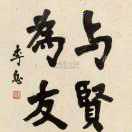 与賢
為友